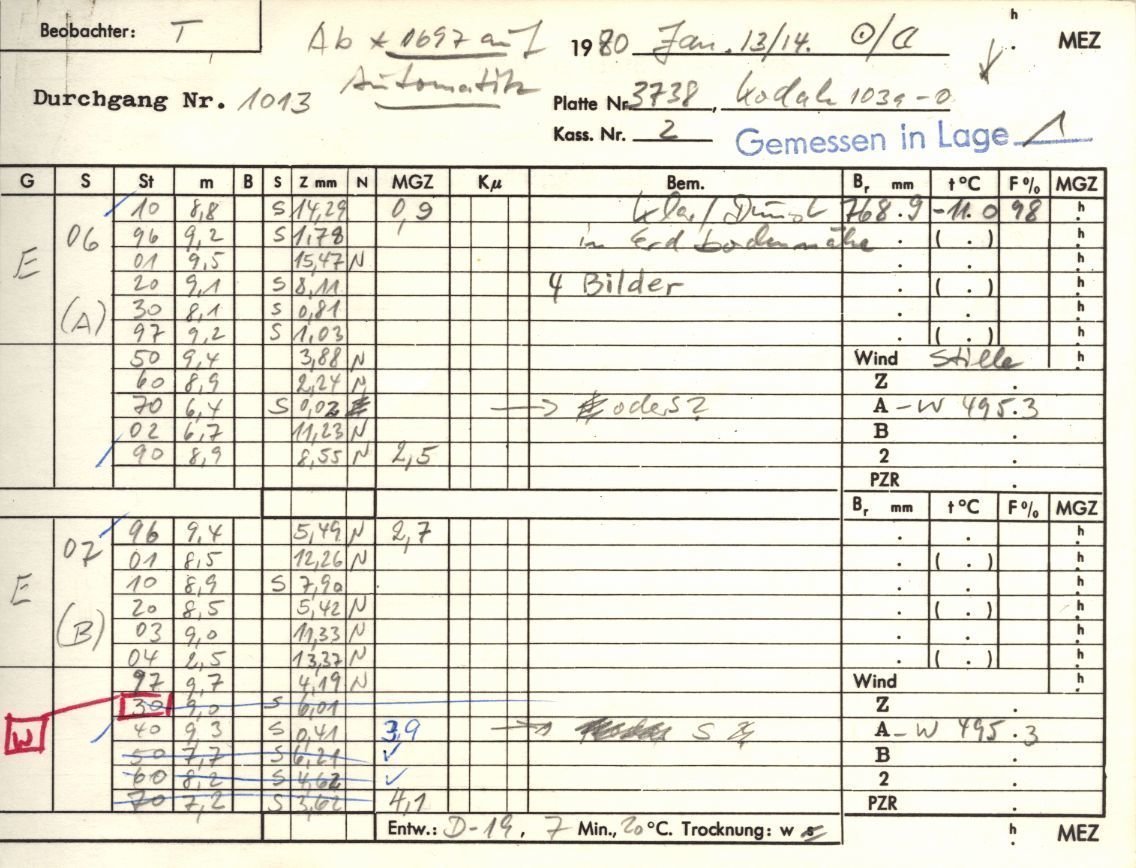 Beobachter: T
Ab * 1697 auf 1980 Jan. 13/14. ʰ. MEZ
Automatik
Durchgang Nr. 1013
Platte Nr. 3738, Kodak 103a-O
Kass. Nr. 2 Gemessen in Lage 1
G S St m B S Z mm N MGZ Kμ Bem. Bᵣ mm t°C F% MGZ
E 06 (A)
10 8,8 S 14,29 0,9 klar/Dunst 768.9 -11.0 98 ʰ.
96 9,2 S 1,78 in Erdbodennähe . ( . ) ʰ.
01 9,5 15,47 N . . ʰ.
20 9,1 S 8,11 4 Bilder . ( . ) ʰ.
30 8,1 S 0,81 . . ʰ.
97 9,2 S 1,03 . ( . ) ʰ.
50 9,4 3,88 N Wind Stille ʰ.
60 8,9 2,24 N Z .
70 6,4 S 0,02 → oder S? A - W 495.3
02 6,7 11,23 N B .
90 8,9 8,55 N 2,5 2 .
PZR .
Bᵣ mm t°C F% MGZ
E 07 (B)
96 9,4 5,49 N 2,7 . . ʰ.
01 8,5 12,26 N . ( . ) ʰ.
10 8,9 S 7,90 . . ʰ.
20 8,5 5,42 N . ( . ) ʰ.
03 9,0 11,33 N . . ʰ.
04 2,5 13,37 N . ( . ) ʰ.
97 9,7 4,19 N Wind ʰ.
30 9,0 S 6,01 Z .
W 40 9,3 S 0,41 3,9 → S A - W 495.3
50 7,7 S 6,21 ✓ B .
60 8,2 S 4,62 ✓ 2 .
70 7,2 S 3,62 4,1 PZR .
Entw.: D-19, 7 Min., 20 °C. Trocknung: w s ʰ. MEZ